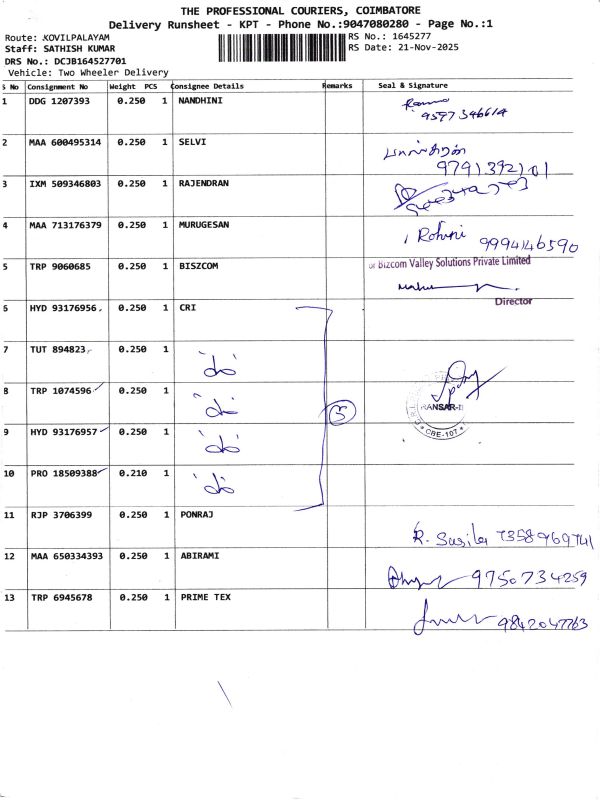 THE PROFESSIONAL COURIERS, COIMBATORE
Delivery Runsheet - KPT - Phone No.:9047080280 - Page No.:1
Route: KOVILPALAYAM
RS No.: 1645277
Staff: SATHISH KUMAR
RS Date: 21-Nov-2025
DRS No.: DCJB164527701
Vehicle: Two Wheeler Delivery
S No Consignment No Weight PCS Consignee Details Remarks Seal & Signature
1 DDG 1207393 0.250 1 NANDHINI
9597346614
2 MAA 600495314 0.250 1 SELVI
9791392101
3 IXM 509346803 0.250 1 RAJENDRAN
4 MAA 713176379 0.250 1 MURUGESAN Rohini 9994146590
5 TRP 9060685 0.250 1 BISZCOM
or Bizcom Valley Solutions Private Limited
Director
6 HYD 93176956 0.250 1 CRI
7 TUT 894823 0.250 1 do
8 TRP 1074596 0.250 1 do 5
9 HYD 93176957 0.250 1 do
CBE-107
10 PRO 18509388 0.210 1 do
11 RJP 3706399 0.250 1 PONRAJ R. Susila 7358969741
12 MAA 650334393 0.250 1 ABIRAMI 9750734259
13 TRP 6945678 0.250 1 PRIME TEX 9842047763